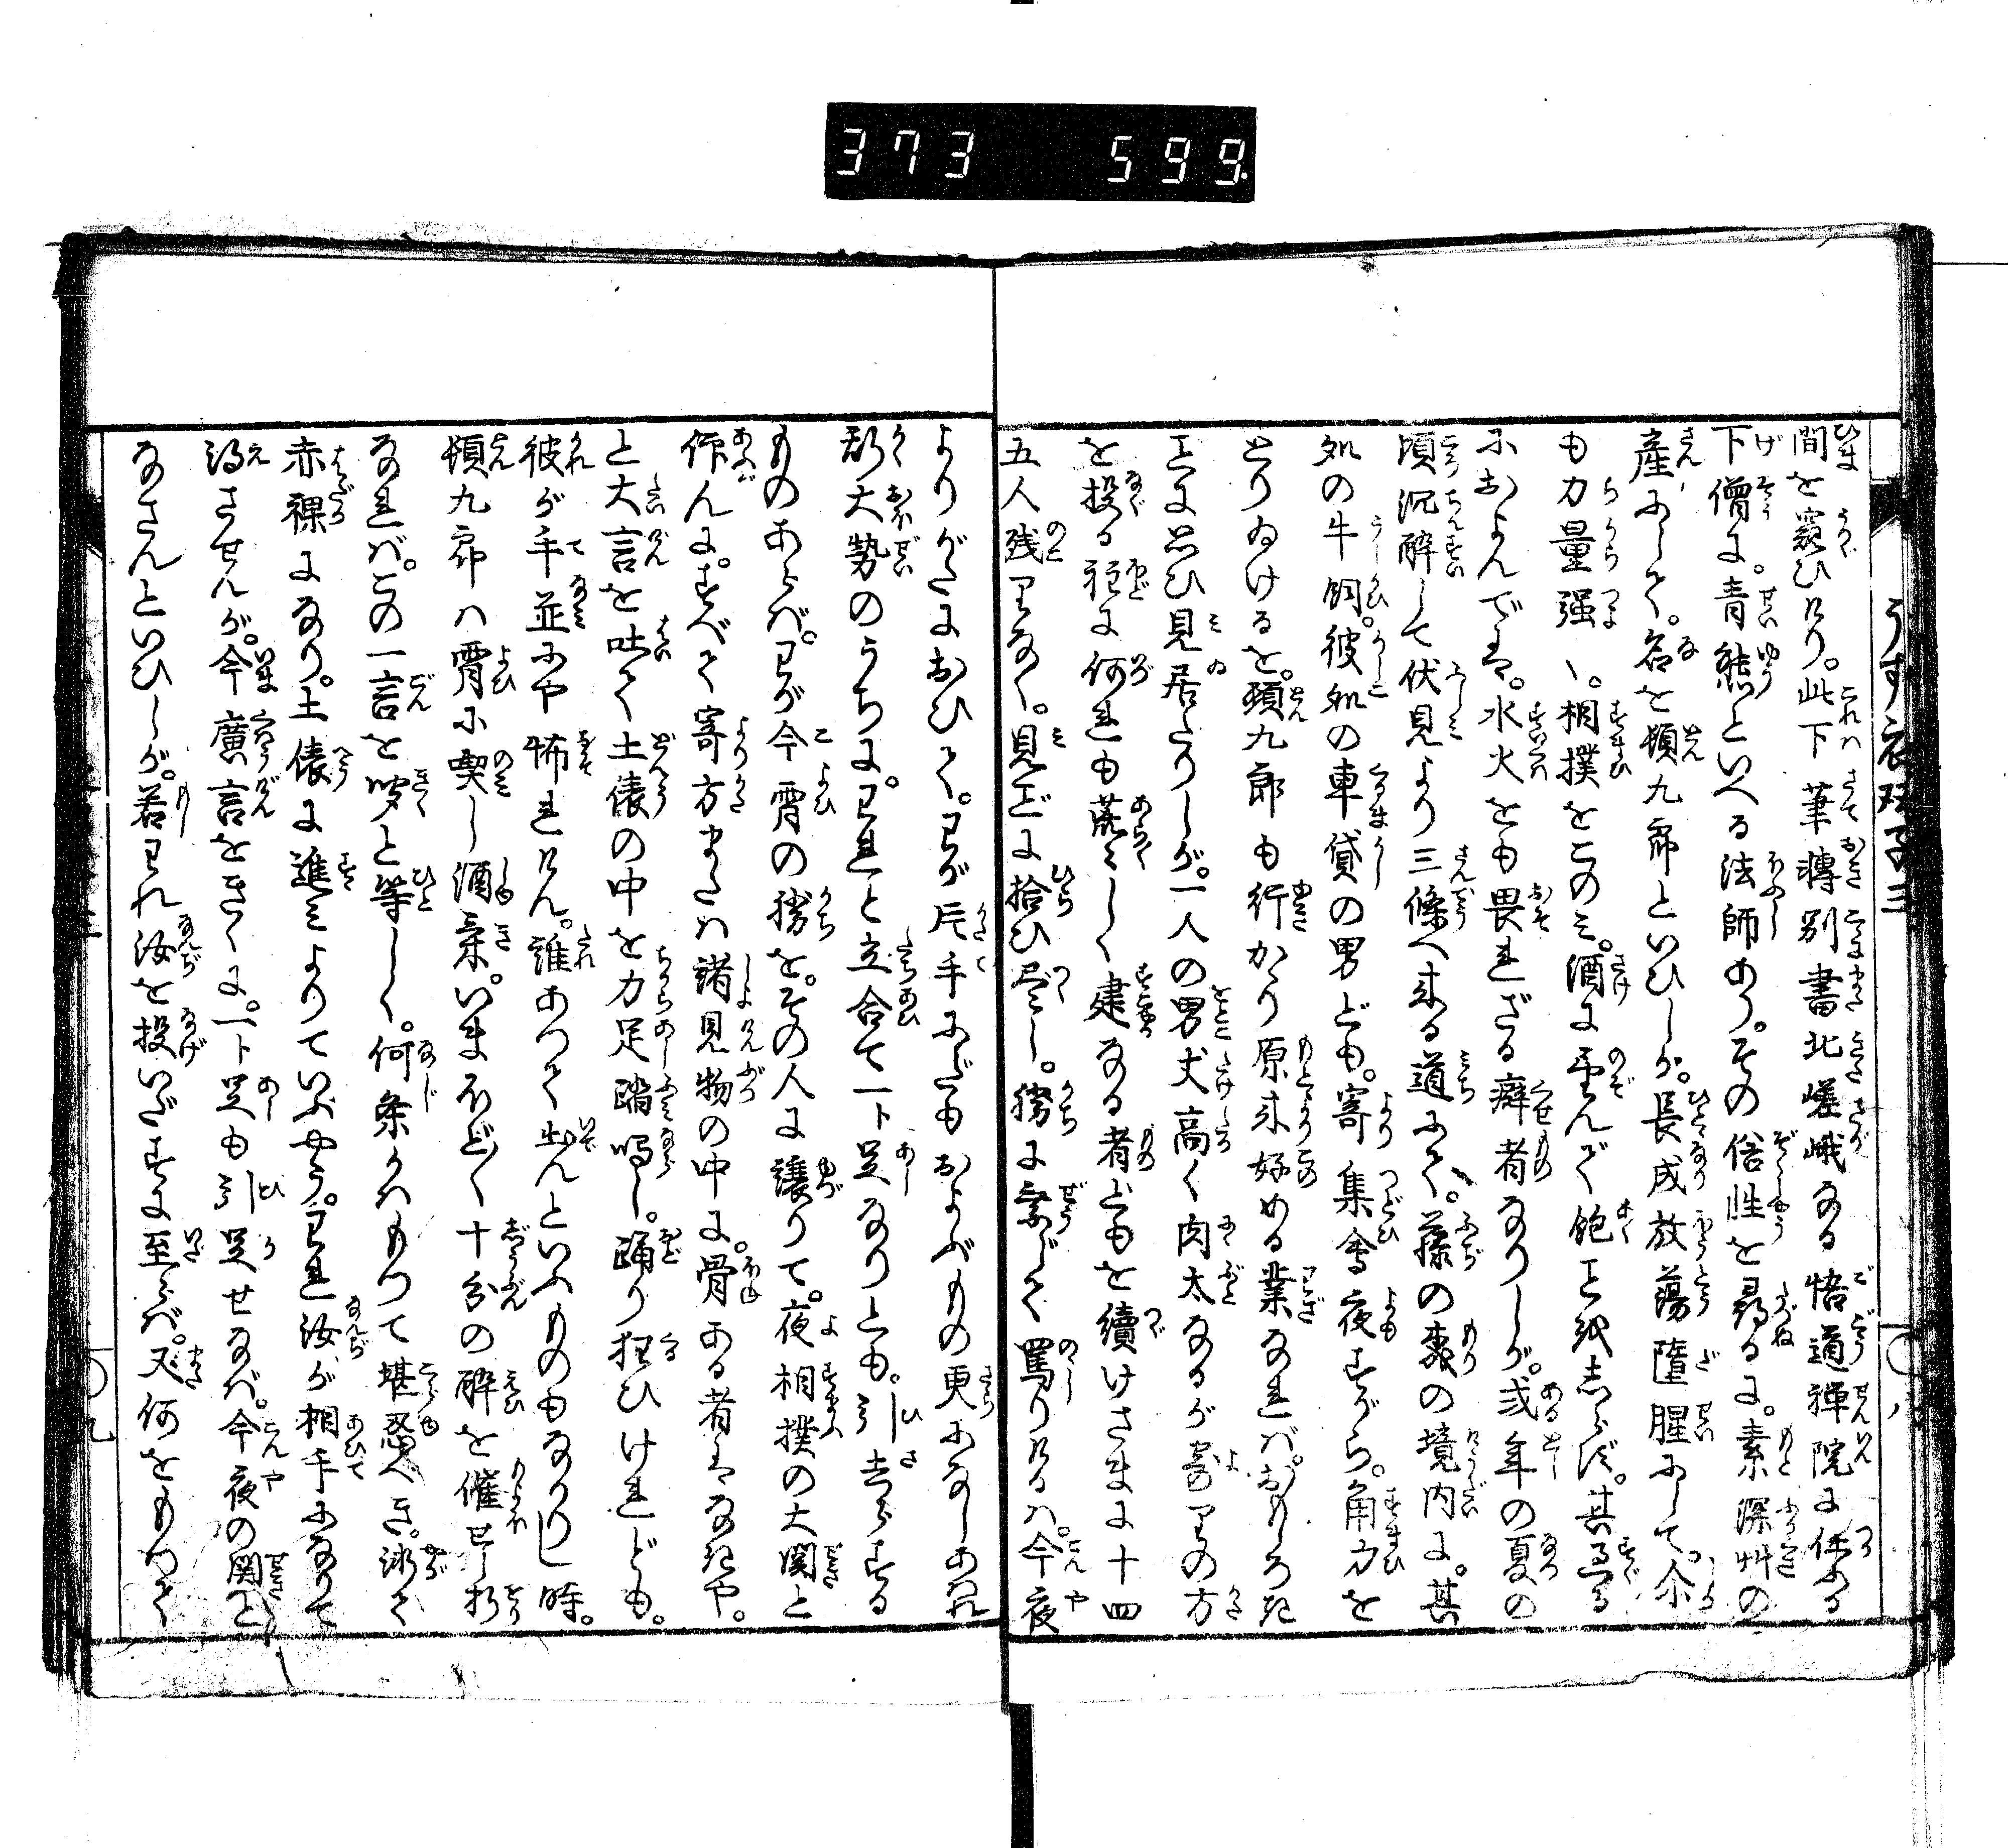 373 599
うす衣双子三
間を窺ひけり。此下筆轉別書北嵯峨なる悟道禅院に仕ふる
下僧に。青熊といへる法師あり。その俗性を尋るに。素深艸の
産にして。名を頓九郎といひしが。長成放蕩隋腥にして。
も力量強く。相撲をこのミ。酒に望んで飽ことを知らず。其
におよんでは。水火をも畏れざる癖者なりしが。或年の夏の
頃沉醉して伏見より三條へ来る道にて。藤の森の境内に。其
処の牛飼。彼処の車貸の男ども。寄集會夜すがら。角力を
とりゐけるを。頓九郎も行かゝり原来好める業なれば。おもしろき
ことに思ひ見居たりしが。一人の男丈高く肉太なるが寄りの方
を投る程に何れも荒々しく建なる者どもを續けさまに十四
五人残りなく。見ごとに拾ひ尽し。勝に乗じて罵りけるハ。今夜
よりがたにおひて。わが片手にだもおよぶもの更になしあれ
大勢のうちに。われと立合て一ト足なりとも。引去らする
ものあらば。わが今宵の勝を。その人に譲りて。夜相撲の大関と
作んに。すべて寄方または諸見物の中に。骨ある者はなきや。
と大言を吐て土俵の中を力足踏鳴し。踊り狂ひけれども。
彼が手並にや怖れけん。誰あつて出んといふものもなかりし時。
頓九郎ハ宵に喫し酒氣。いまほどく十分の醉を催せし折
なれば。この一言を听と等しく。何条かハもつて堪忍べき。
赤裸になり。土俵に進ミよりていふやう。われ汝が相手になりて
得させんが。今廣言をきくに。一ト足も引足せなば。今夜の関と
なさんといひしが。若われ汝を投いだすに至らば。又何をもつて
九